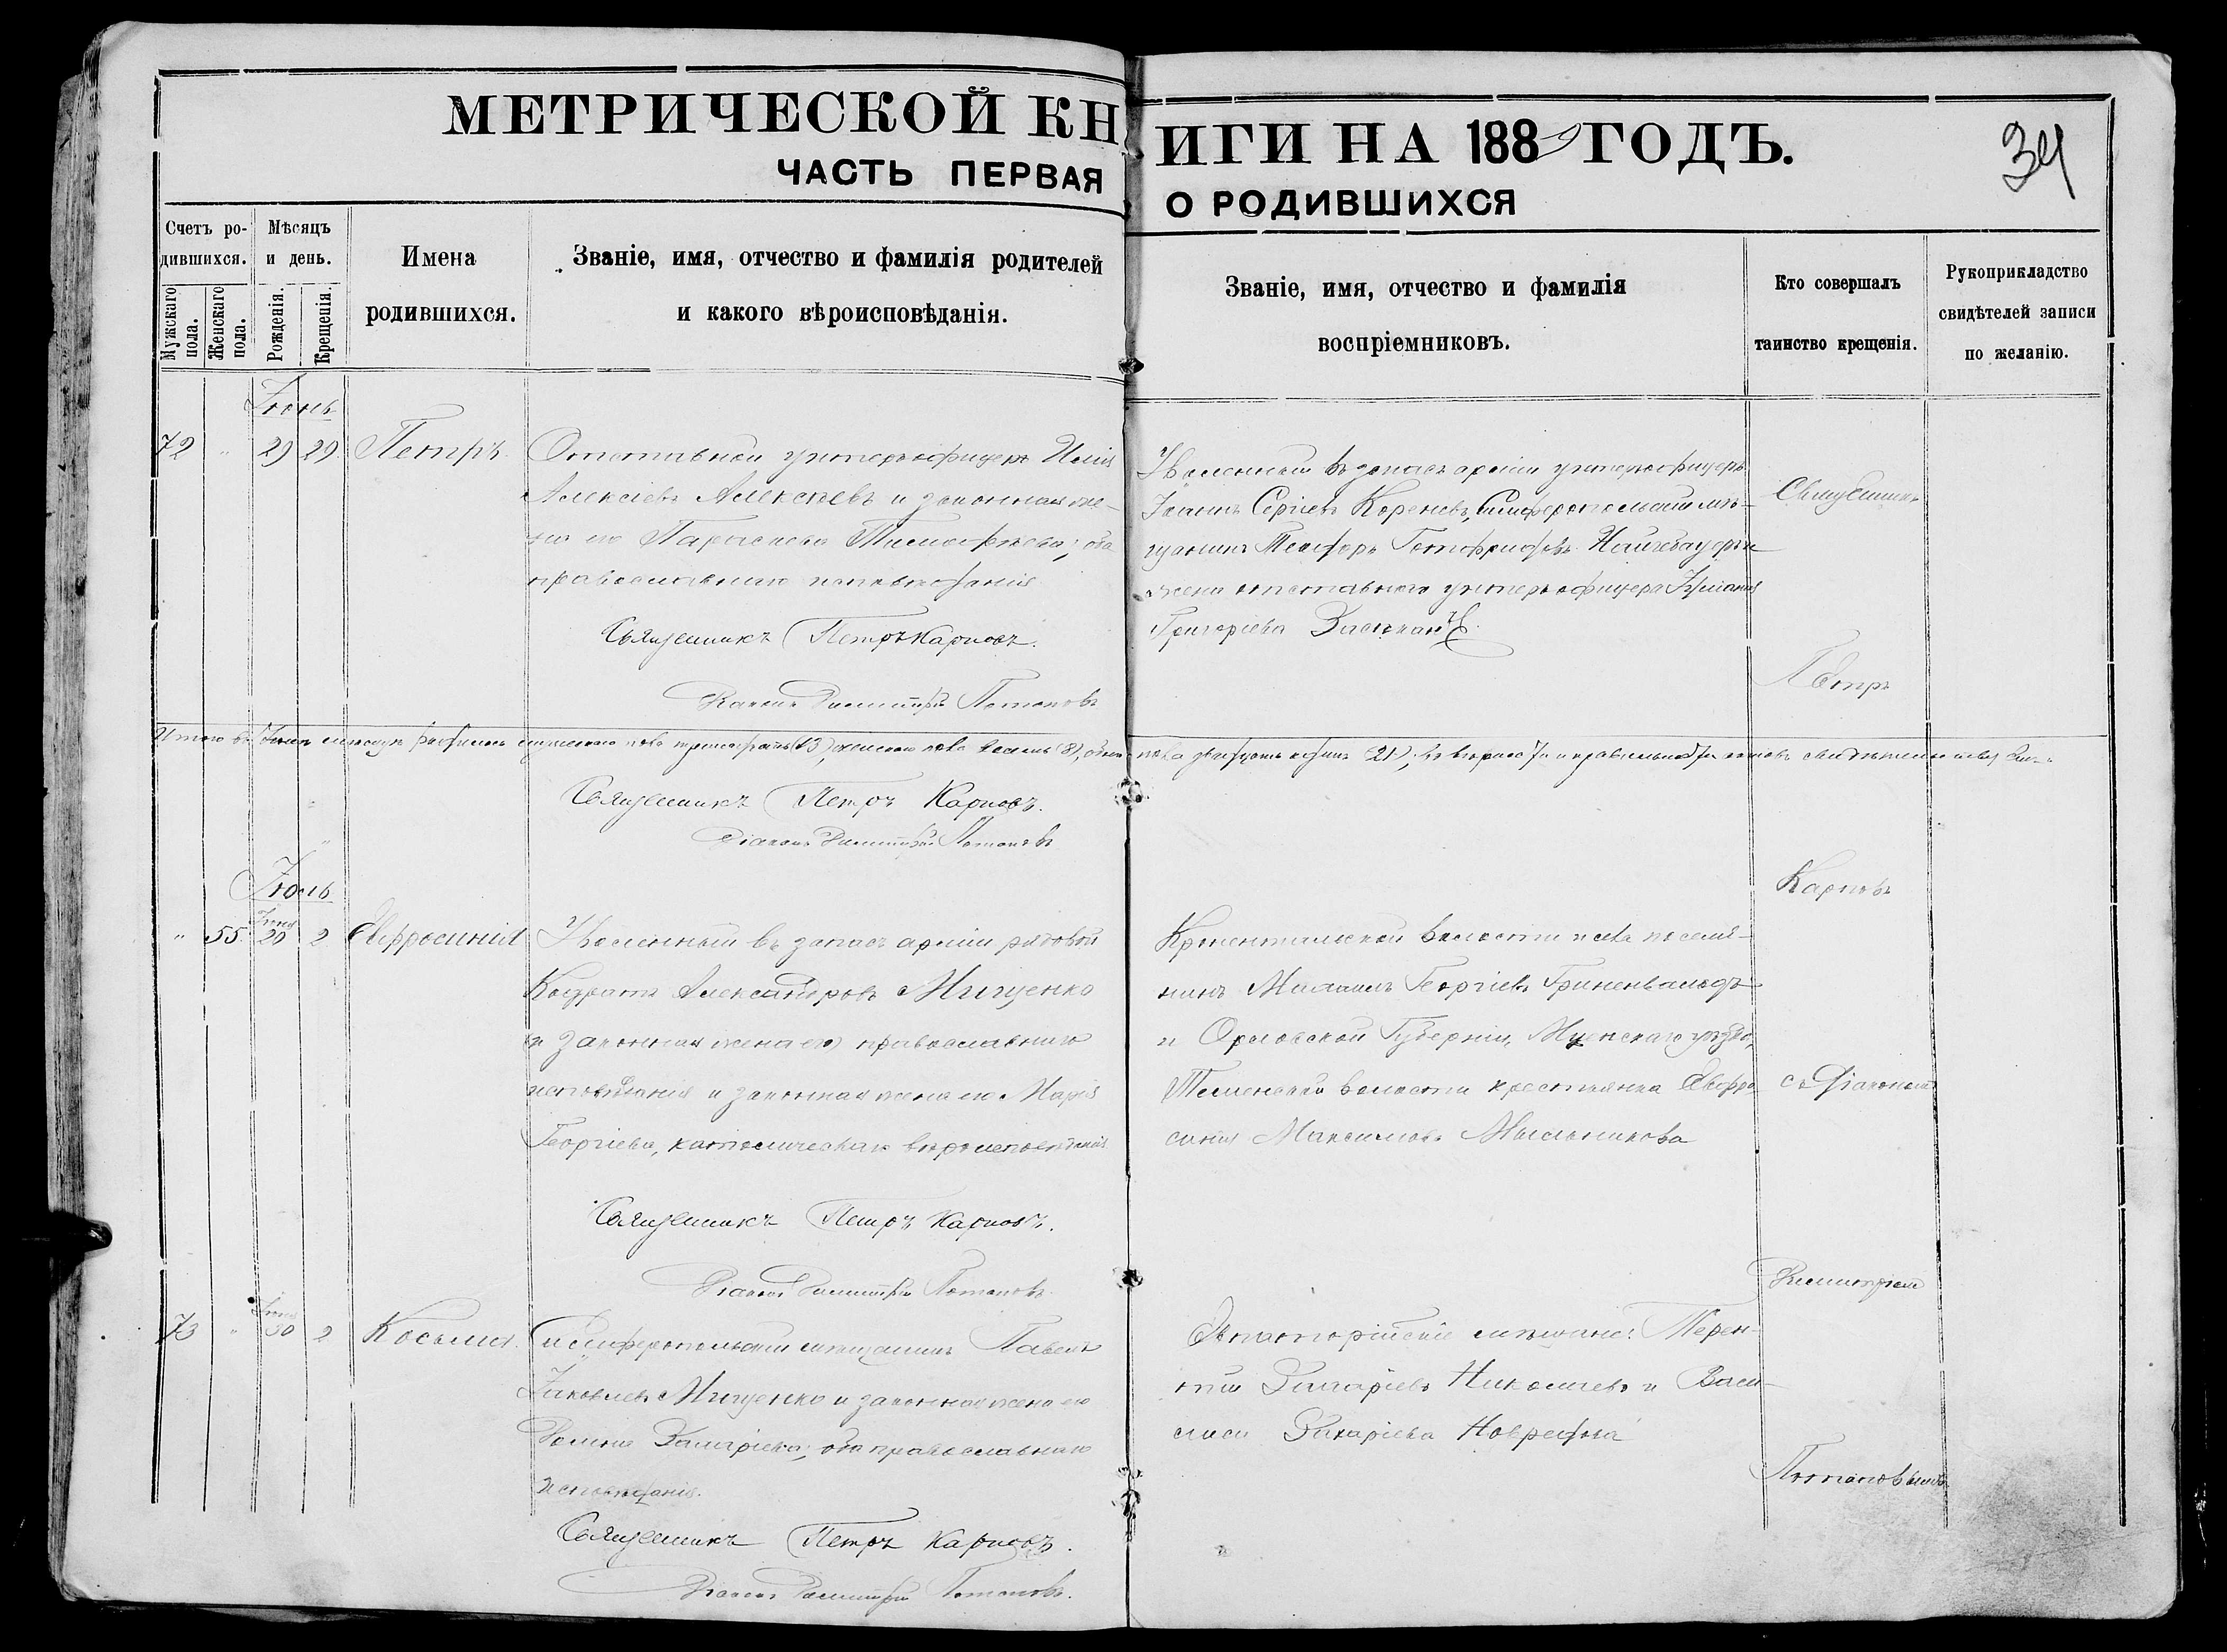 МЕТРИЧЕСКОЙ КНИГИ НА 1889 ГОДЪ.
34
ЧАСТЬ ПЕРВАЯ О РОДИВШИХСЯ
Счетъ родившихся.
Мужскаго пола.
Женскаго пола.
Мѣсяцъ и день.
Рожденія.
Крещенія.
Имена
родившихся.
Званіе, имя, отчество и фамилія родителей
и какого вѣроисповѣданія.
Званіе, имя, отчество и фамилія
воспріемниковъ.
Кто совершалъ
таинство крещенія.
Рукоприкладство
свидѣтелей записи
по желанію.
Іюнь
72 " 29 29 Петръ
Отставной унтеръ-офицеръ Илія
Алексіевъ Алексѣевъ и законная же-
на его Параскева Тимофѣева; оба
православнаго исповѣданія
Священникъ Петръ Карповъ.
Діаконъ Димитрій Потаповъ
Уволенный въ запасъ арміи унтеръ-офицеръ
Іоаннъ Сергіевъ Кореневъ, Симферопольскій мѣ-
щанинъ
жена отставного унтеръ-офицера Іуліанія
Григоріева
Священникъ
Петръ
Карповъ
съ Діакономъ
Димитріемъ
Потаповымъ
Итого въ Іюнѣ мѣсяцѣ родилось мужескаго пола тринадцать (13), женскаго пола восемь (8), обоего пола двадцать одинъ (21),
Священникъ Петръ Карповъ.
Діаконъ Димитрій Потаповъ
Іюль
" 55 Іюня 20 2 Евфросинія
Уволенный въ запасъ арміи рядовой
Кодратъ Александровъ Мищенко
и законная жена его православнаго
исповѣданія и законная жена его Марія
Георгіева, католическаго вѣроисповѣданія
Священникъ Петръ Карповъ.
Діаконъ Димитрій Потаповъ.
Кроненталь­ской волости и села поселя-
нинъ Михаилъ Георгіевъ Гриненвальдъ
и Орловской Губерніи, Мценскаго уѣзда,
Тельченской волости крестьянка Евфро-
синія Максимова Мыльникова
73 " Іюня 30 2 Косьма.
Симферопольскій мѣщанинъ Павелъ
Іаковлевъ Мищенко и законная жена его
Домна Захаріева; оба православнаго
исповѣданія.
Священникъ Петръ Карповъ.
Діаконъ Димитрій Потаповъ.
Евпаторійскіе мѣщане: Терен-
тій Захаріевъ Николаевъ и Васи-
лиса Захаріева